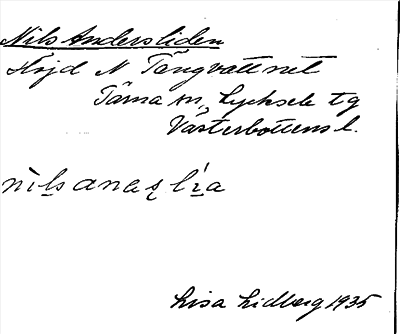 Nils Andersliden
Höjd N Tängvattnet
Tärna sn, Lycksele tg
Västerbottens l.
nìl̠s anaş lı́ạ
Lisa Lidberg 1935